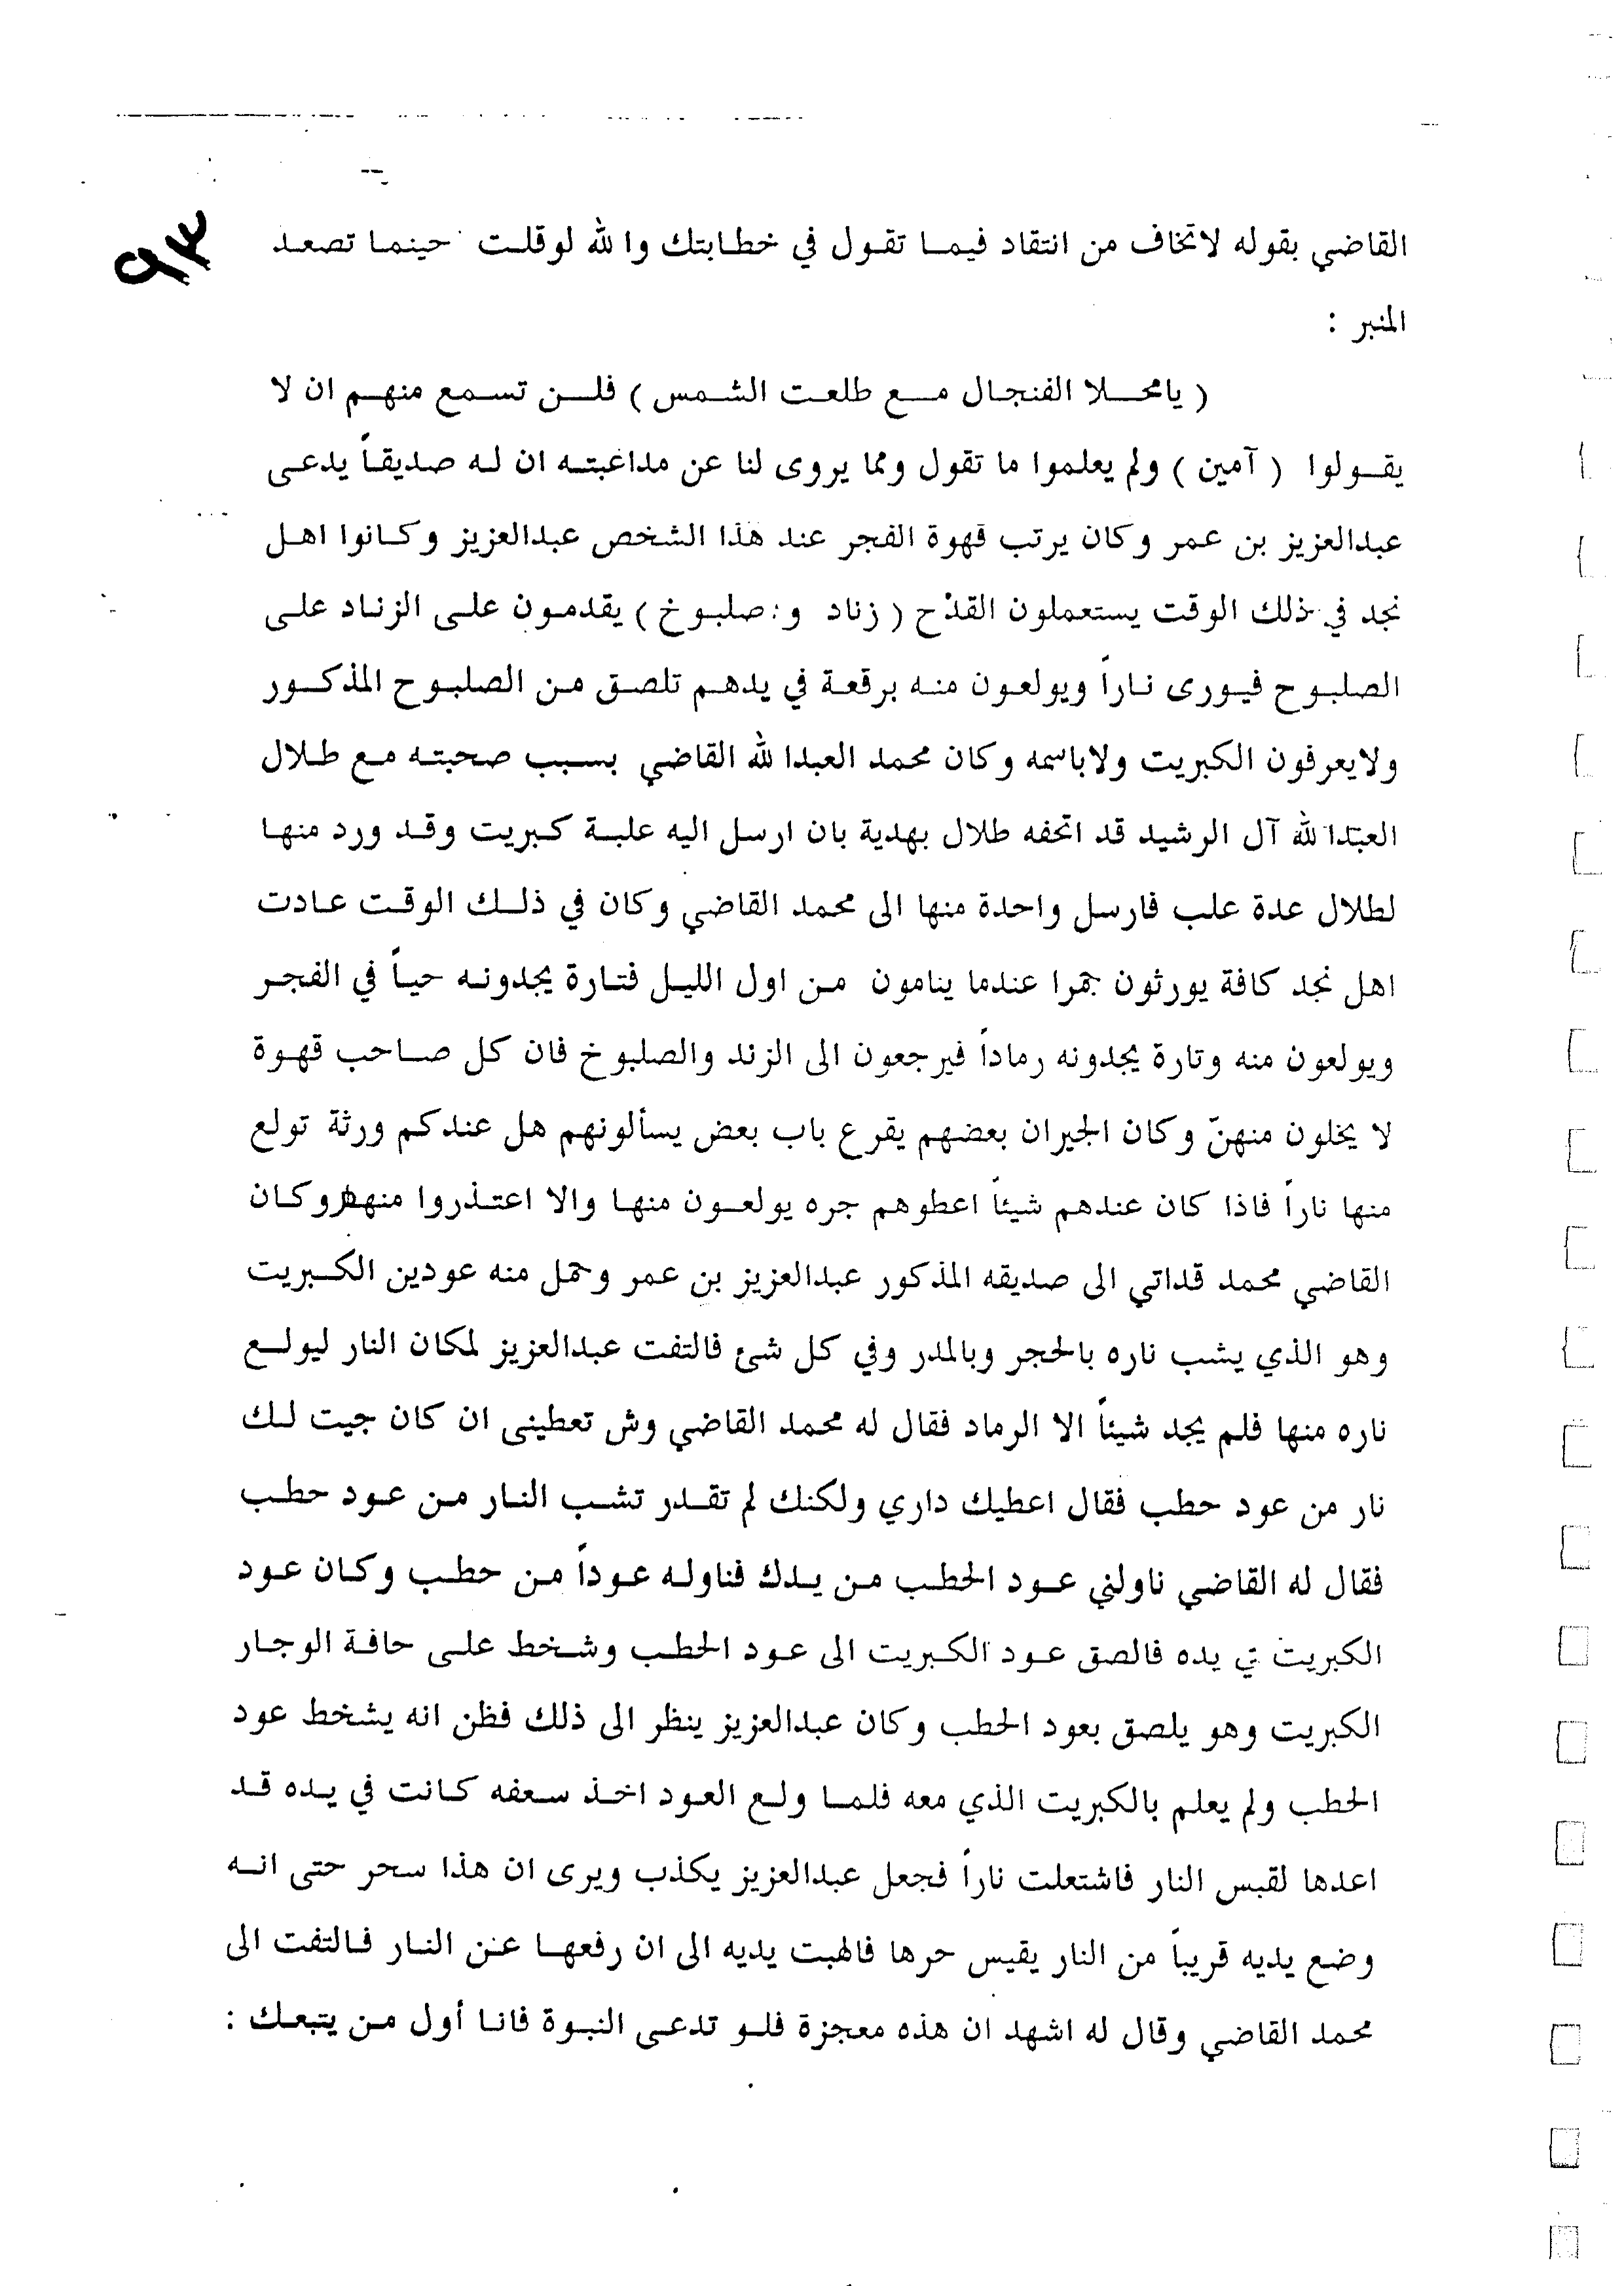 ٩٣
القاضي بقوله لاتخاف من انتقاد فيما تقول في خطابتك والله لوقلت حينما تصعد
المنبر :
( يامحلا الفنجال مع طلعت الشمس ) فلن تسمع منهم ان لا
يقولوا ( آمين ) ولم يعلموا ما تقول ومما يروى لنا عن مداعبته ان له صديقاً يدعى
عبدالعزيز بن عمر وكان يرتب قهوة الفجر عند هذا الشخص عبدالعزيز وكانوا اهل
نجد في ذلك الوقت يستعملون القدْح ( زناد و: صلبوخ ) يقدمون على الزناد على
الصلبوح فيورى ناراً ويولعون منه برقعة في يدهم تلصق من الصلبوح المذكور
ولايعرفون الكبريت ولاباسمه وكان محمد العبدالله القاضي بسبب صحبته مع طلال
العبدالله آل الرشيد قد اتحفه طلال بهدية بان ارسل اليه علبة كبريت وقد ورد منها
لطلال عدة علب فارسل واحدة منها الى محمد القاضي وكان في ذلك الوقت عادت
اهل نجد كافة يورثون جمرا عندما ينامون من اول الليل فتارة يجدونه حياً في الفجر
ويولعون منه وتارة يجدونه رماداً فيرجعون الى الزند والصلبوخ فان كل صاحب قهوة
لا يخلون منهنّ وكان الجيران بعضهم يقرع باب بعض يسألونهم هل عندكم ورثة تولع
منها ناراً فاذا كان عندهم شيئاً اعطوهم جره يولعون منها والا اعتذروا منهم وكان
القاضي محمد قداتي الى صديقه المذكور عبدالعزيز بن عمر وحمل منه عودين الكبريت
وهو الذي يشب ناره بالحجر وبالمدر وفي كل شئ فالتفت عبدالعزيز لمكان النار ليولع
ناره منها فلم يجد شيئاً الا الرماد فقال له محمد القاضي وش تعطينى ان كان جيت لك
نار من عود حطب فقال اعطيك داري ولكنك لم تقدر تشب النار من عود حطب
فقال له القاضي ناولني عود الحطب من يدك فناوله عوداً من حطب وكان عود
الكبريت في يده فالصق عود الكبريت الى عود الحطب وشخط على حافة الوجار
الكبريت وهو يلصق بعود الحطب وكان عبدالعزيز ينظر الى ذلك فظن انه يشخط عود
الحطب ولم يعلم بالكبريت الذي معه فلما ولع العود اخذ سعفه كانت في يده قد
اعدها لقبس النار فاشتعلت ناراً فجعل عبدالعزيز يكذب ويرى ان هذا سحر حتى انه
وضع يديه قريباً من النار يقيس حرها فالهبت يديه الى ان رفعها عن النار فالتفت الى
محمد القاضي وقال له اشهد ان هذه معجزة فلو تدعى النبوة فانا أول من يتبعك :